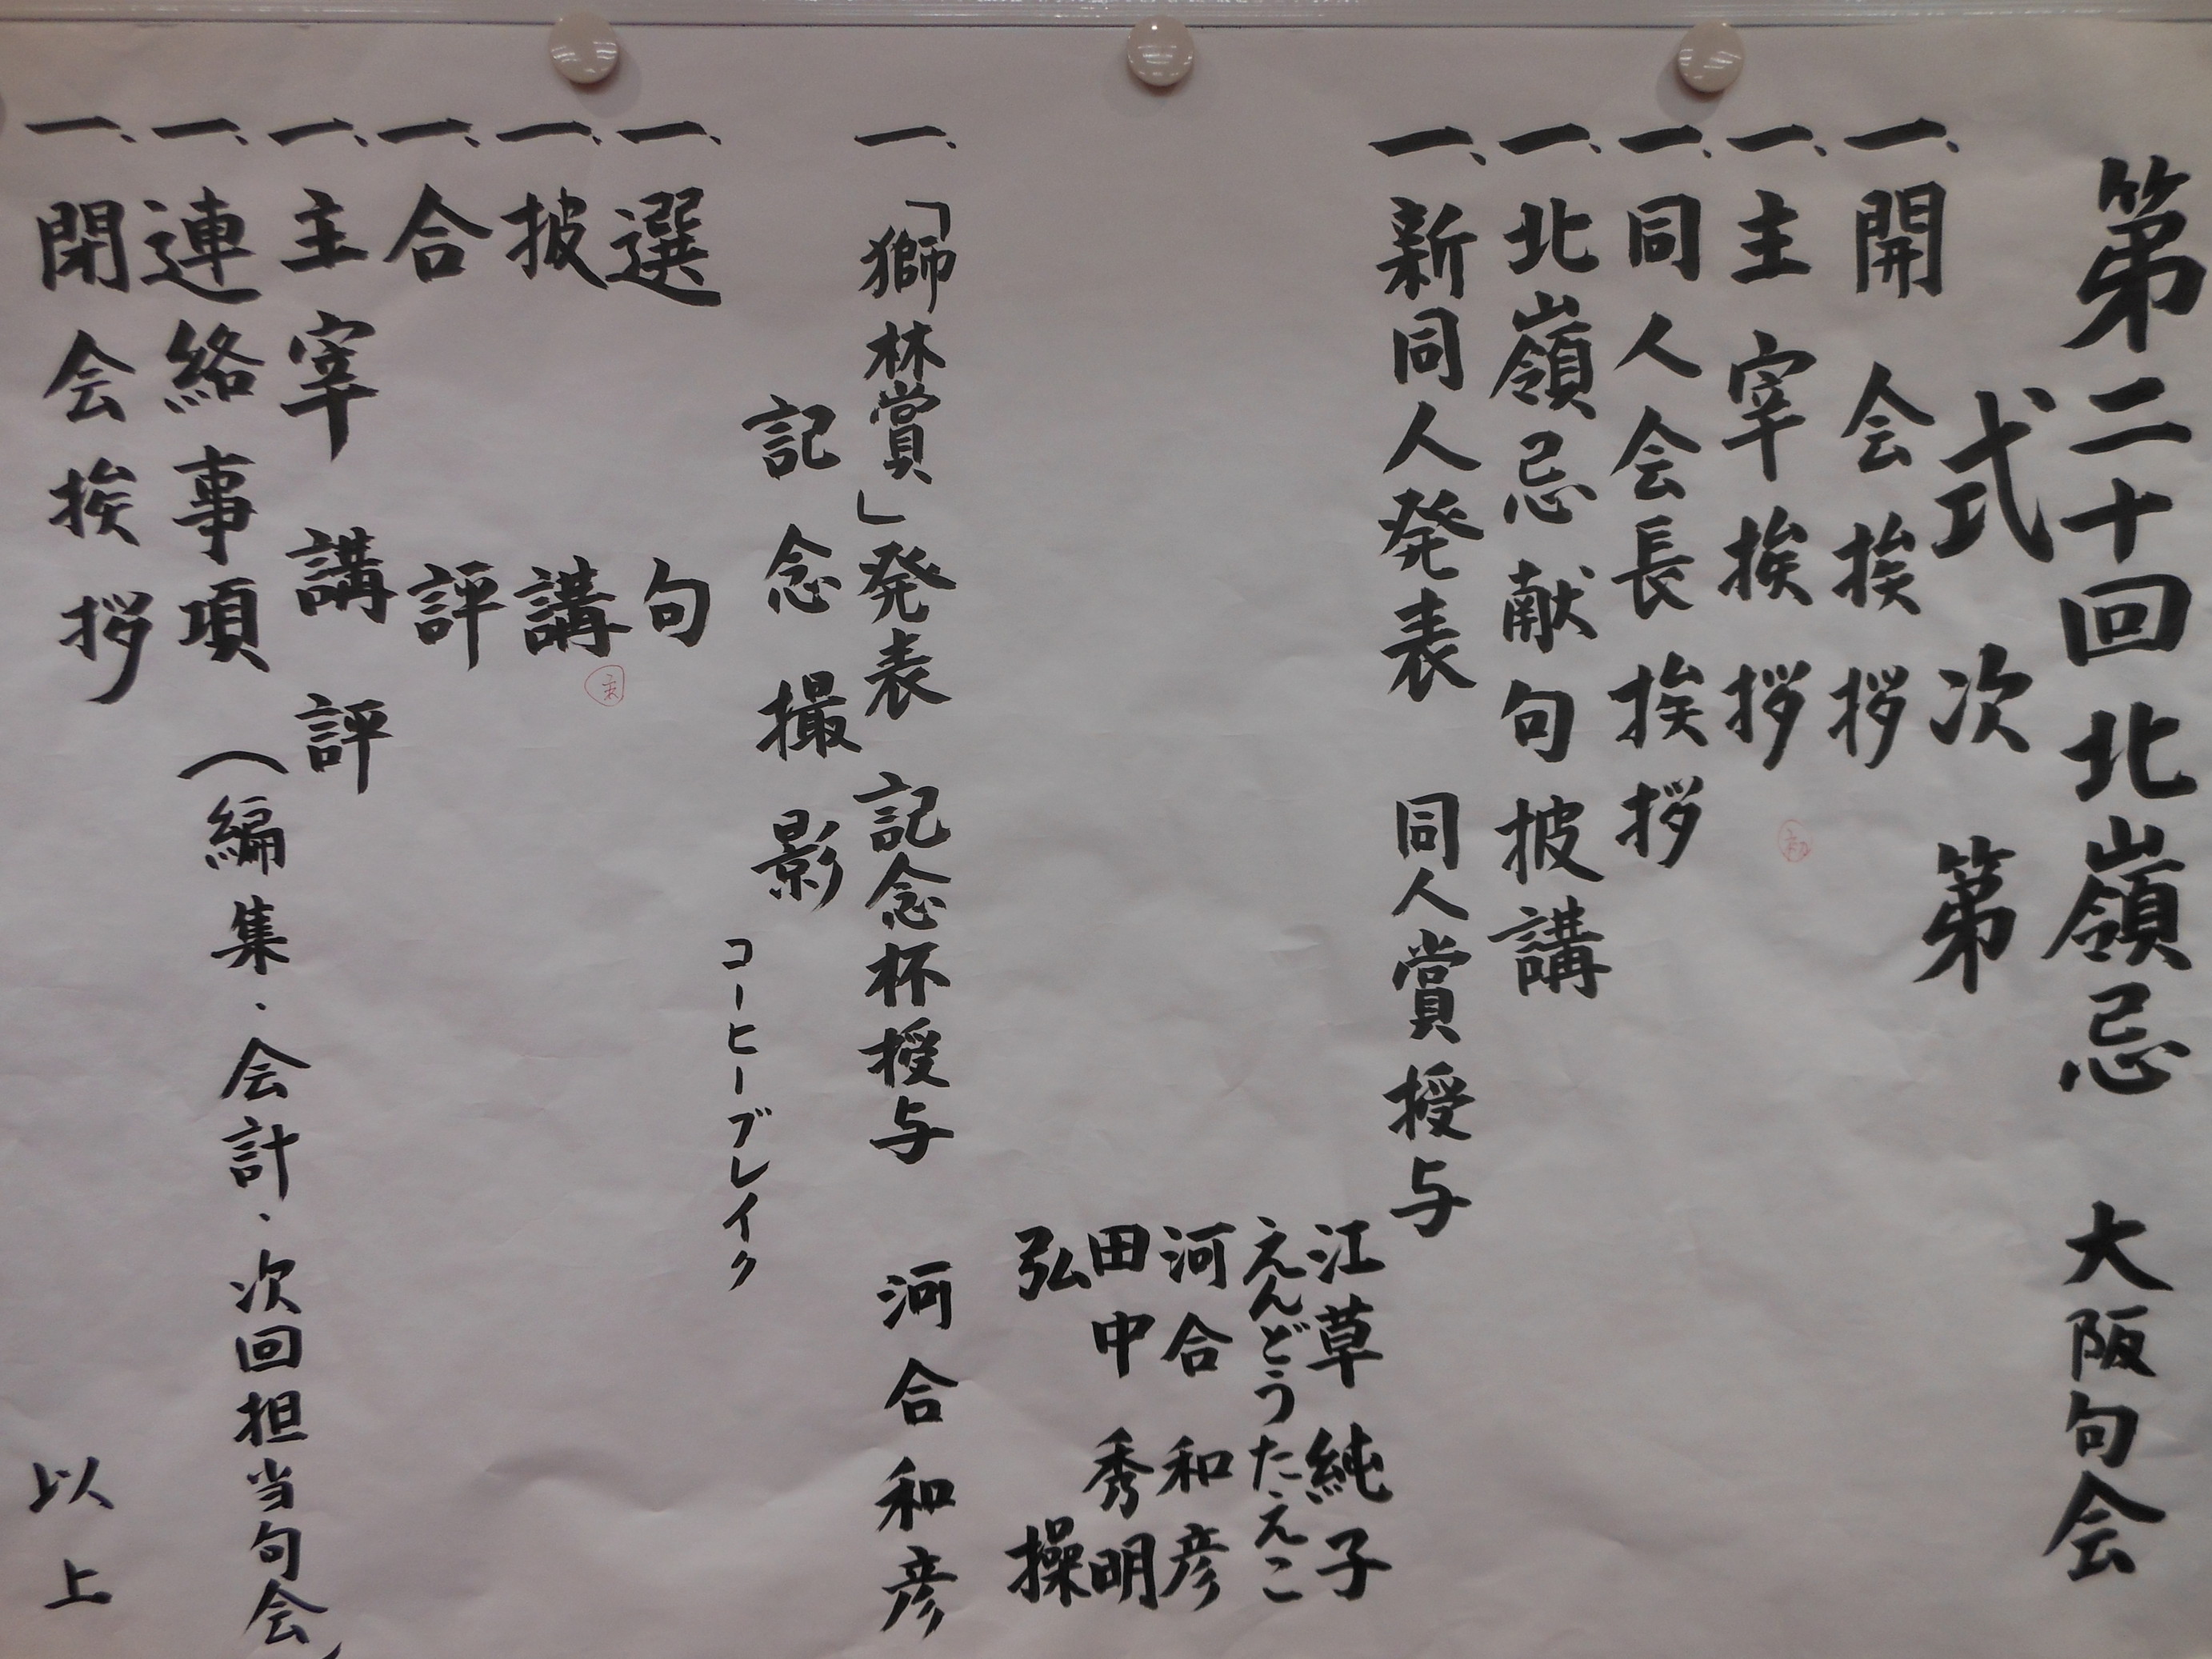 第二十回北嶺忌　大阪句会
式次第
一、開会挨拶
一、主宰挨拶
一、同人会長挨拶
一、北嶺忌献句披講
一、新同人発表　同人賞授与
江草純子
えんどうたえこ
河合和彦
田中秀明
弘操
一、「獅林賞」発表　記念杯授与　河合和彦
記念撮影
コーヒーブレイク
一、選句
一、披講
一、合評
一、主宰講評
一、連絡事項（編集・会計・次回担当句会）
一、閉会挨拶
以上